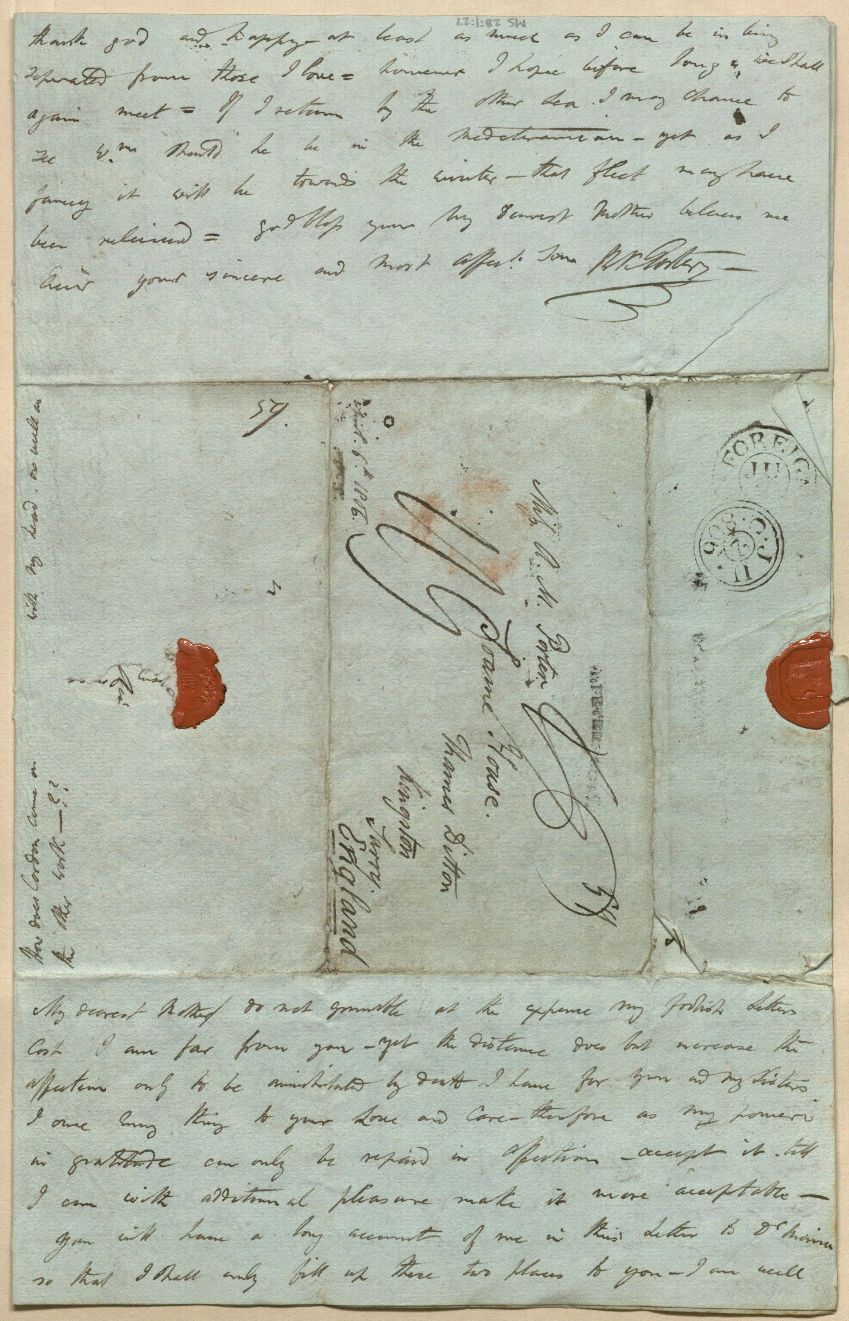 MS 28:1:27
thank god and happy - at least as much as I can be in being
seperated from those I love = however I hope before long we shall
again meet = If I return by the other Sea. I may chance to
see Wm should he be in the Mediteranian - yet as I
fancy it will be towards the winter - that fleet may have
been releived = god bless you my Dearest Mother beleive me
Ever your sincere and most affect. Son RKPorter -
59.
with my head as well as
How does Cordon come on
the other work - ??
April. 6th. 1806
Miss A. M. Porter
Foanne House.
Thames Ditton
Kingston
Surry.
England
FOREIG
III
JU 11
2
806
My dearest Mother do not grumble at the expense my foolish Letters
Cost I am far from you - yet the distance does but increase the
affection only to be anihilated by death I have for you and my Sisters
I owe Every thing to your Love and Care - therefore as my powers
in gratitude can only be repaid in affection - accept it till
I can with additional pleasure make it more acceptable -
you will have a long account of me in this Letter to Dr
so that I shall only fill up these two places to you - I am well